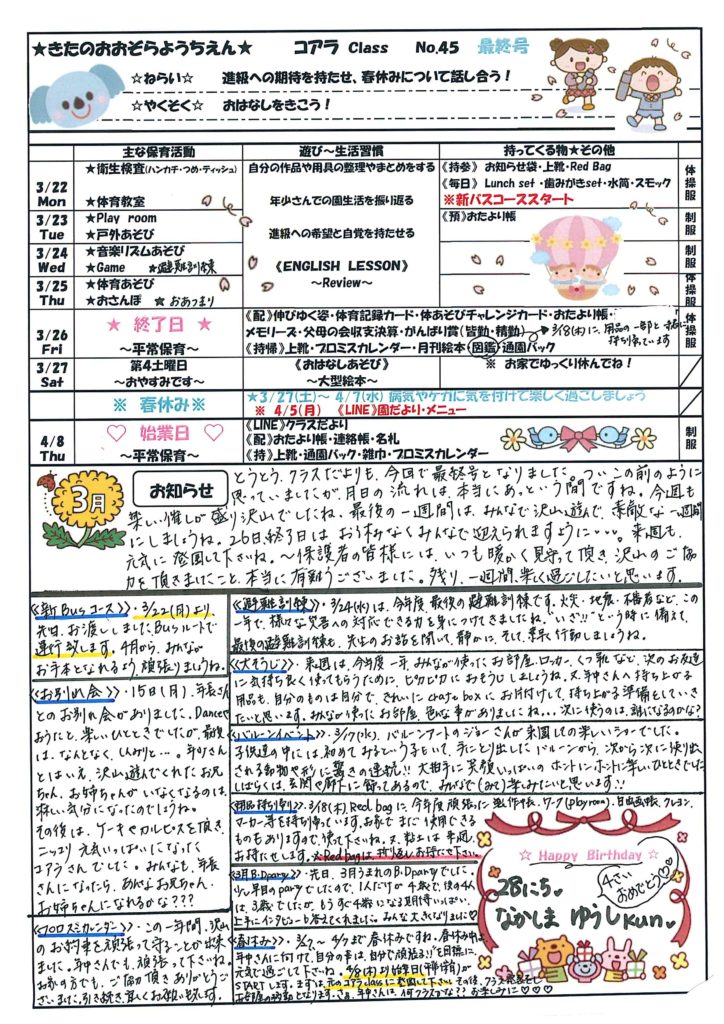 ★きたのおおぞらようちえん★ コアラ Class No.45 最終号
☆ねらい☆ 進級への期待を持たせ、春休みについて話し合う！
☆やくそく☆ おはなしをきこう！
主な保育活動 遊び～生活習慣 持ってくる物★その他
3/22 Mon
★衛生検査(ハンカチ・つめ・ティッシュ)
★体育教室
自分の作品や用具の整理やまとめをする
《持参》 お知らせ袋・上靴・Red Bag
《毎日》 Lunch set ・歯みがきset・水筒・スモック
※新バスコーススタート
体操服
3/23 Tue
★Play room
★戸外あそび
年少さんでの園生活を振り返る
《預》おたより帳
制服
3/24 Wed
★音楽リズムあそび
★Game ★避難訓練
進級への希望と自覚を持たせる
制服
3/25 Thu
★体育あそび
★おさんぽ ☆おあつまり
《ENGLISH LESSON》
～Review～
体操服
3/26 Fri
★ 終了日 ★
～平常保育～
《配》伸びゆく姿・体育記録カード・体あそびチャレンジカード・おたより帳・
メモリーズ・父母の会収支決算・がんばり賞(皆勤・精勤)
《持帰》上靴・プロミスカレンダー・月刊絵本・図鑑・通園バック
3/18(木)に、用品の一部と一緒に
持ち帰っています
体操服
3/27 Sat
第4土曜日
～おやすみです～
《おはなしあそび》
～大型絵本～
※ お家でゆっくり休んでね！
※ 春休み※
★3/27(土)～ 4/7(水) 病気やケガに気を付けて楽しく過ごしましょう
※ 4/5(月) 《LINE》園だより・メニュー
4/8 Thu
♡ 始業日 ♡
～平常保育～
《LINE》クラスだより
《配》おたより帳・連絡帳・名札
《持》上靴・通園バック・雑巾・プロミスカレンダー
制服
3月 お知らせ
とうとう、クラスだよりも、今回で最終号となりました。つい、この前のように
思っていましたが、月日の流れは、本当にあっという間ですね。今週も
楽しい催しが盛り沢山でしたね。最後の一週間は、みんなで沢山遊んで、素敵な一週間
にしましょうね。26日終了日は、お休みなくみんなで迎えられますように・・・。来週も、
元気に登園して下さいね。～保護者の皆様には、いつも暖かく見守って頂き、沢山のご協
力を頂きましたこと、本当に有難うございました。残り、一週間、楽しく過ごしたいと思います。
《新Busコース》・3/22(月)より、
先日、お渡ししましたBusルートで
運行致します。4月から、みんなが
お手本となれるよう、頑張りましょうね。
《お別れ会》・15日(月)、年長さん
とのお別れ会がありました。Danceや
おうたと、楽しいひとときでしたが、最後
は、なんとなく、しんみりと…。年少さん
とはいえ、沢山遊んでくれたお兄
ちゃん、お姉ちゃんがいなくなるのは、
淋しい気分になったのでしょうね。
その後は、ケーキやカルピスを頂き、
ニッコリ元気いっぱいになった
コアラさんでした。みんなも、年長
さんになったら、あんなお兄ちゃん、
お姉ちゃんになれるかな？？？
《プロミスカレンダー》・この一年間、沢山
のお約束を頑張って守ることが出来
ました。年中さんでも、頑張って下さいね。
お家の方でも、ご協力頂きありがとうご
ざいました。引き続き、宜しくお願い致します。
《避難訓練》・3/24(水)は、今年度最後の避難訓練です。火災・地震・不審者など、この
一年で、様々な災害への対応できる力を身につけてきましたね。"いざ!!"という時に備えて、
最後の避難訓練も、先生のお話を聞いて、静かに、そして、素早く行動しましょうね。
《大そうじ》・来週は、今年度一年、みんなが使ったお部屋、ロッカー、くつ箱など、次のお友達
に気持ち良く使ってもらうために、ピカピカにおそうじしましょうね。又、年中さんへ持ち上がる
用品も、自分のものは自分で、きれいにcraft boxにお片付けして、持ち上がる準備をしていき
たいと思います。みんなが使ったお部屋、色んな事がありましたね・・・。次に使うのは、誰になるのかな？
《バルーンイベント》・3/17(水)、バルーンアートのジョーさんが来園しての楽しいショーでした。
子供達の中には、初めてみるという子もいて、手にとり出したバルーンから、次から次に繰り出
される動物や形に驚きの連続!!大拍手に笑顔いっぱいのホントにホントに楽しいひとときでした
しばらくは、玄関や廊下に飾ってあるので、みんなで(みて)楽しみたいと思います!!
《用品持ち帰り》・3/18(木)、Red bagに、今年度頑張った製作帳、ワーク(Play room)、自由画帳、クレヨン、
マーカー等を持ち帰っています。お家でまだ使用できる
ものもありますので、使って下さいね。又、粘土は来週、
お持たせします。※Red bagは、折り返しお持たせ下さい。
《3月B.Dparty》・先日、3月うまれのB.Dpartyでした。
3歳でしたが、もうすぐ4歳になる期待いっぱい、
上手にインタビューも答えてくれました。みんな大きくなりました♡
《春休み》・3/27～4/7まで春休みですね。春休み中は、
年中さんに向けて、自分の事は、自分で頑張る!!を目標に、
元気で過ごして下さいね。4/8(木)より始業日(平常保育)が
STARTします。まずは、元のコアラclassに登園して下さい。その後、クラス発表をし
お楽しみに♡♡♡
☆ Happy Birthday ☆
4さい
おめでとう♡
28にち♡
なかしま ゆうしkun♡